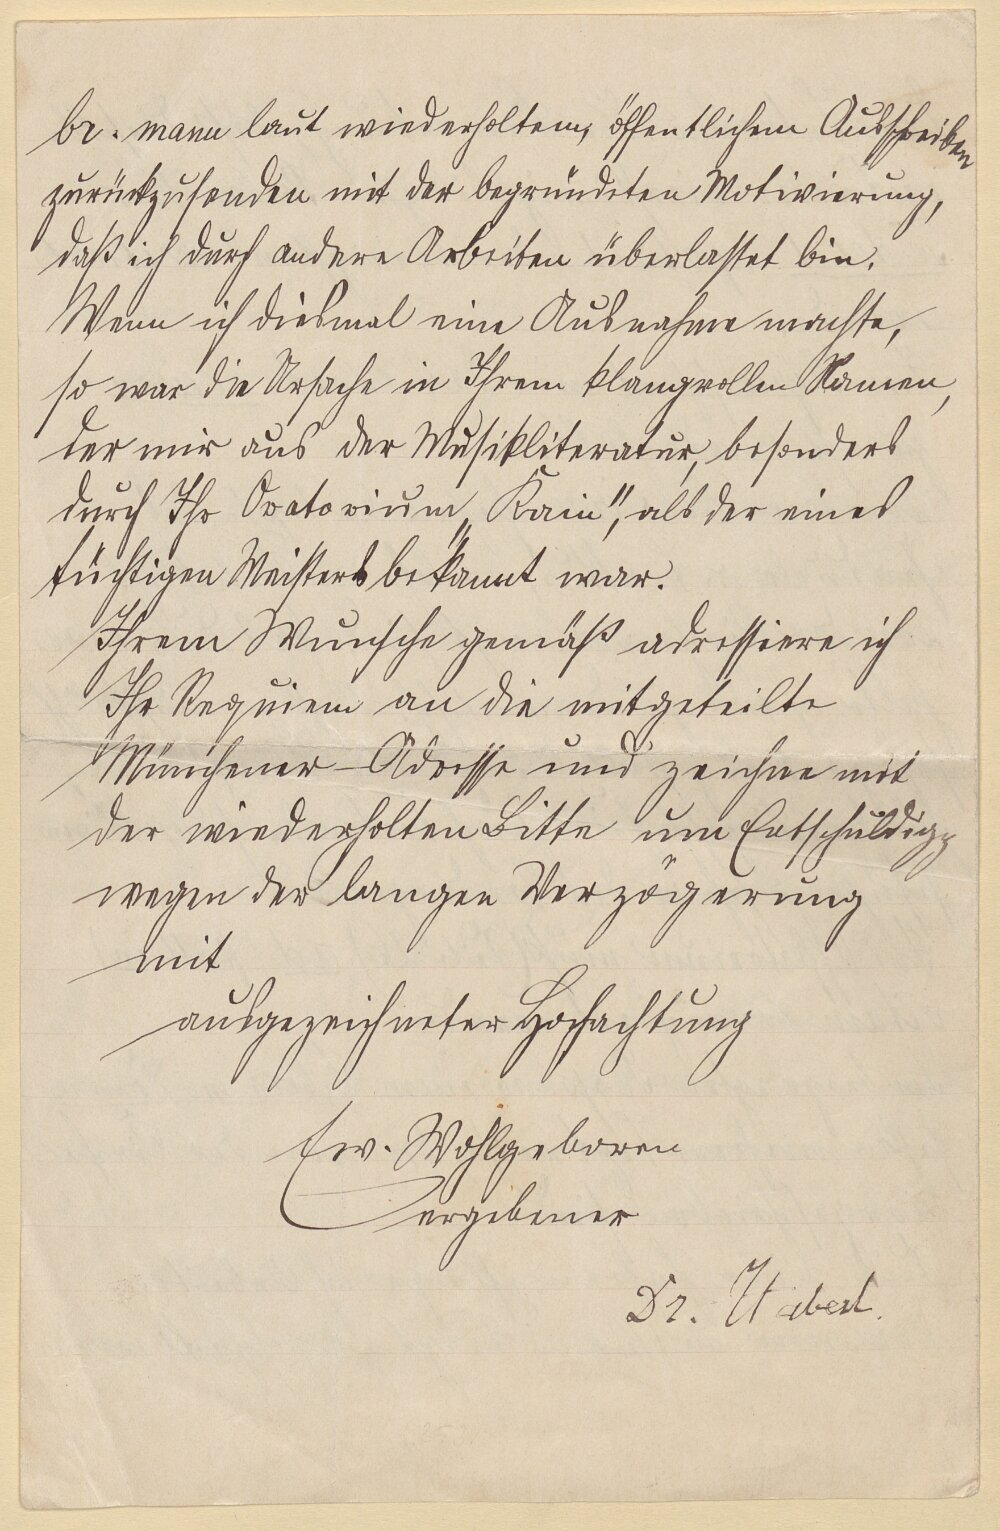 br. manu laut wiederholtem, öffentlichem Ausschreiben
zurückzusenden mit der begründeten Motivierung,
daß ich durch andere Arbeiten überlastet bin.
Wenn ich diesmal eine Ausnahme machte,
so war die Ursache in Ihrem klangvollen Namen,
der mir aus der Musikliteratur, besonders
durch Ihr Oratorium „Kain", als der eines
tüchtigen Meisters bekannt war.
Ihrem Wunsche gemäß adressiere ich
Ihr Requiem an die mitgeteilte
Münchener-Adresse und zeichne mit
der wiederholten Bitte um Entschuldigg
wegen der langen Verzögerung
mit
ausgezeichneter Hochachtung
Ew. Wohlgeboren
ergebener
Dr. Haberl.